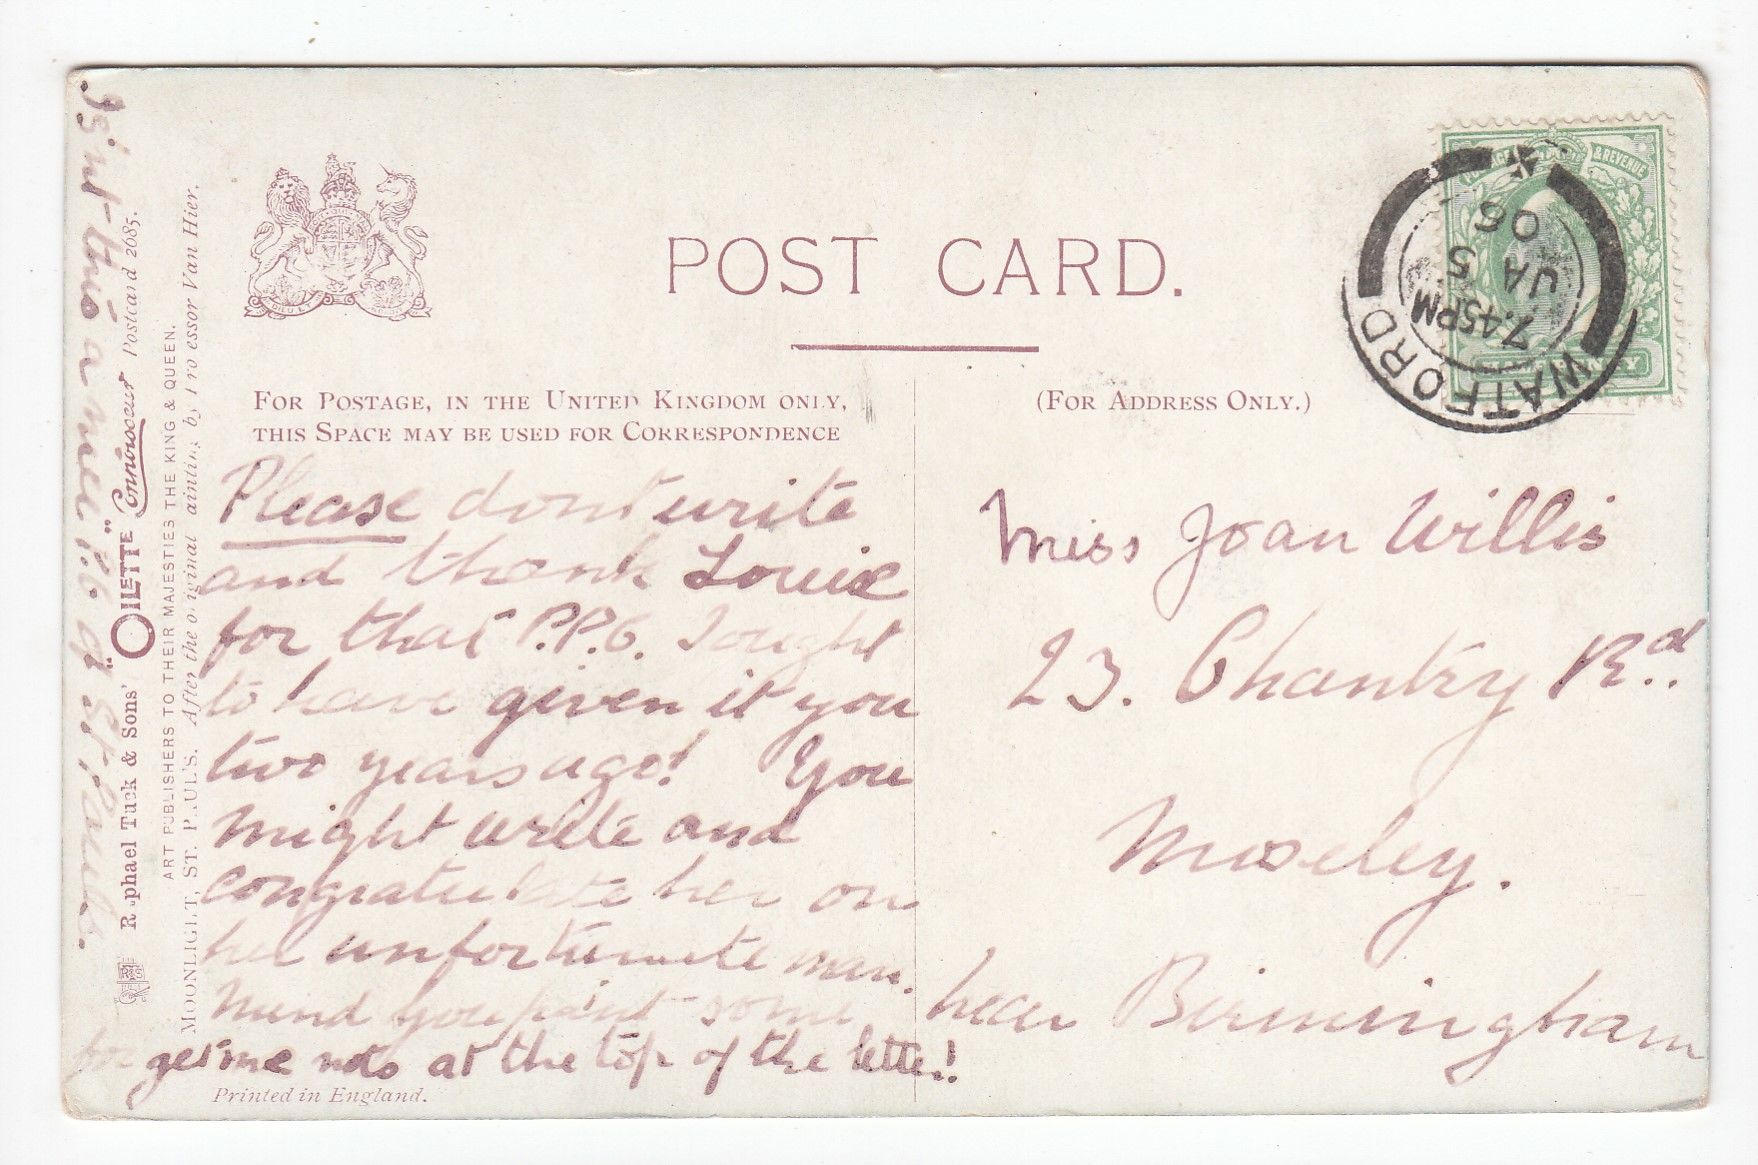 POST CARD.
FOR POSTAGE, IN THE UNITED KINGDOM ONLY,
THIS SPACE MAY BE USED FOR CORRESPONDENCE
(FOR ADDRESS ONLY.)
& REVENUE
WATFORD
7.45PM
JA 5
06
Please dont write
and thank Louie
for that P.P.C. I ought
to have given it you
two years ago! You
might write and
congratulate her on
her unfortunate man.
Mind you paint some
for get me nots at the top of the letter!
Printed in England.
Miss Joan Willis
23. Chantry Rd.
Moseley.
near Birmingham
Is'nt this a nice P.C. of St. Pauls.
Raphael Tuck & Sons' "OILETTE" Connoisseur Postcard 2085.
ART PUBLISHERS TO THEIR MAJESTIES THE KING & QUEEN.
MOONLIGHT, ST. PAUL'S. After the original painting by Professor Van Hier.